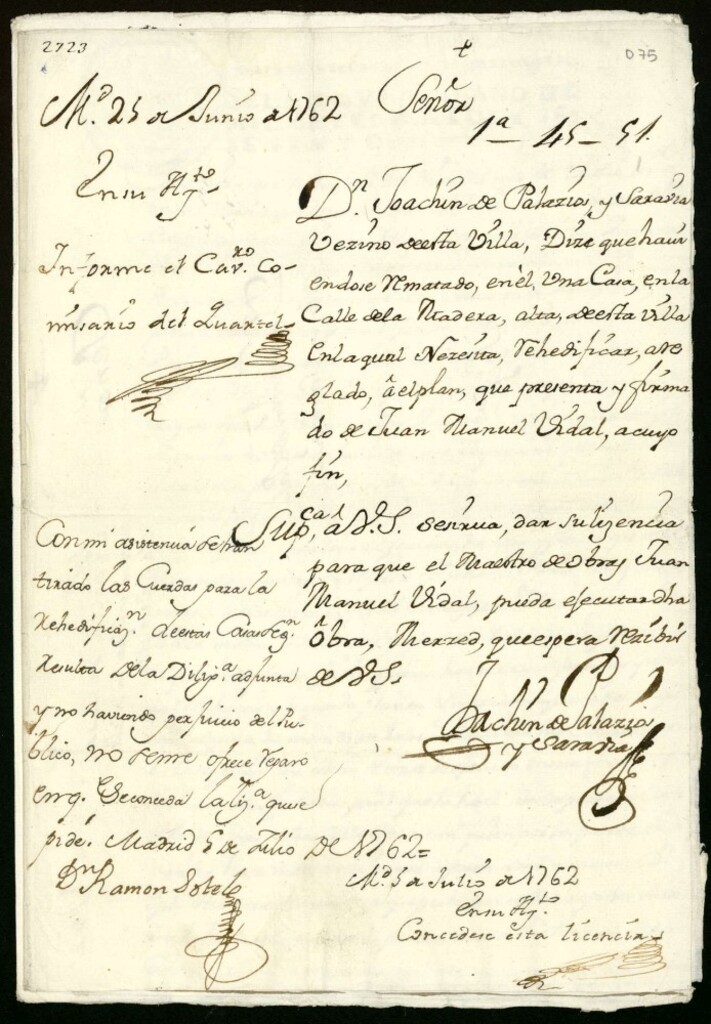 2723
075
+
Señor
M.d 25 de Junio de 1762
1a - 45 - 51.
En su Ay.to
Informe el Cav.ro Co-
misario del Quartel
D.n Joachin de Palazio, y Saravia
Vezino de esta Villa, Dize que havi
endose Rematado, en él, Una Casa, en la
Calle de la Madera, alta, de esta Villa
en la qual Nezesita, Rehedificar, arre
glado, a el plan, que presenta y firma
do de Juan Manuel Vidal, a cuyo
fin,
Sup.ca a V.S. se sirva, dar su lizencia
para que el Maestro de obras Juan
Manuel Vidal, pueda ejecutar dha
obra, Merzed, que espera Rezibir
de V.S.
Joachin de Palazio
y Saravia
Con mi asistencia se han
tirado las Cuerdas para la
Rehedificaz.n de estas Casas seg.n
Resulta de la Dilix.a adjunta
y no haviendo perjuicio del Pu-
blico, no se me ofrece reparo
en q. Se conceda la liz.a que se
pide. Madrid 5 de Julio de 1762=
Dn Ramon Sotelo
M.d 5 de Julio de 1762
En su Ay.to
Concedese esta licencia